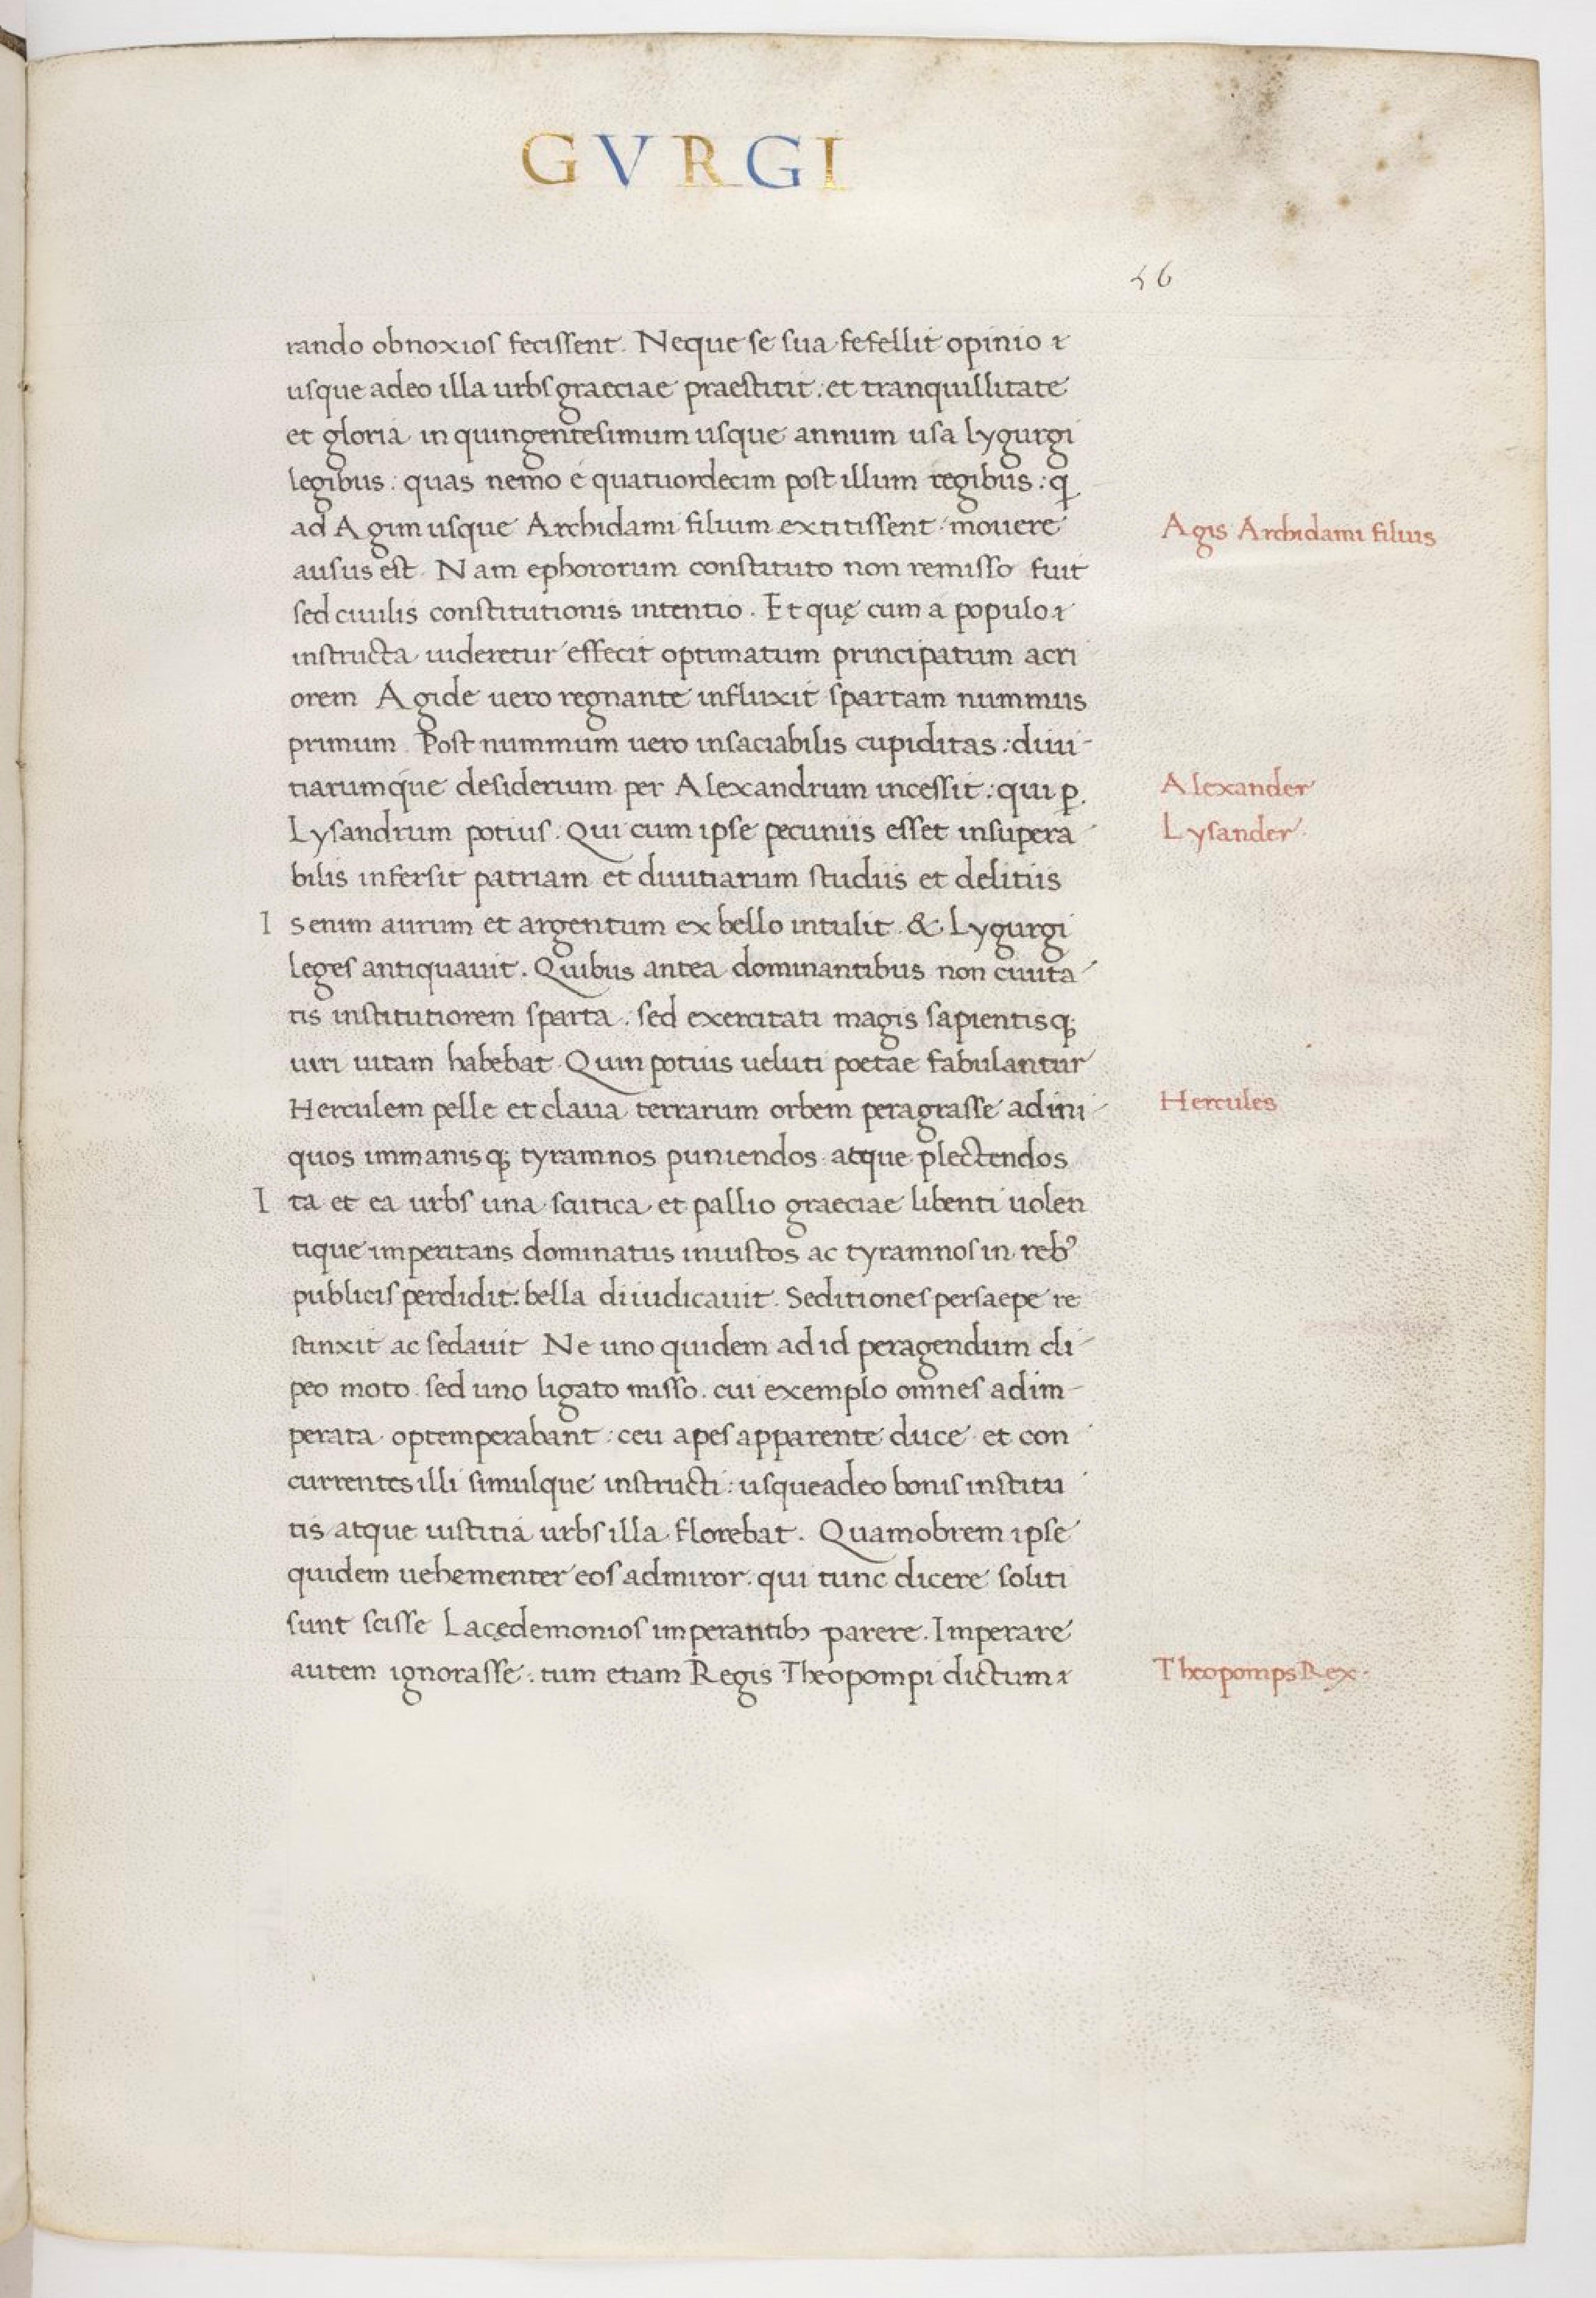 GVRGI
56
rando obnoxios fecissent. Neque se sua fefellit opinio &
usque adeo illa urbs graeciae praestitit: et tranquillitate
et gloria in quingentesimum usque annum usa lygurgi
legibus: quas nemo e quatuordecim post illum regibus: q
ad Agim usque Archidami filium extitissent mouere
Agis Archidami filius
ausus est. Nam ephororum constituto non remisso fuit
sed ciuilis constitutionis intentio. Et quę cum a populo &
instructa uideretur effecit optimatum principatum acri
orem Agide uero regnante influxit spartam nummus
primum. Post nummum uero insaciabilis cupiditas: diui-
tiarumque desiderium per Alexandrum incessit: qui ꝑ
Alexander
Lysandrum potius. Qui cum ipse pecuniis esset insupera-
Lysander.
bilis infersit patriam et diuitiarum studiis et delitiis
Is enim aurum et argentum ex bello intulit. & Lygurgi
leges antiquauit. Quibus antea dominantibus non ciuita-
tis institutiorem sparta. sed exercitati magis sapientisq;
uiri uitam habebat. Quin potius ueluti poetae fabulantur
Herculem pelle et claua terrarum orbem peragrasse ad ini-
Hercules
quos immanisq; tyramnos puniendos atque plectendos
Ita et ea urbs una scitica et pallio graeciae libenti uolen
tique imperitans dominatus iniustos ac tyramnos in reb9
publicis perdidit: bella diiudicauit. Seditiones persaepe re
stinxit ac sedauit Ne uno quidem ad id peragendum cli-
peo moto. sed uno ligato misso. cui exemplo omnes ad im-
perata optemperabant: ceu apes apparente duce et con
currentes illi simulque instructi: usqueadeo bonis institu
tis atque iustitia urbs illa florebat. Quamobrem ipse
quidem uehementer eos admiror. qui tunc dicere soliti
sunt scisse Lacędemonios imperantibꝫ parere. Imperare
autem ignorasse: tum etiam Regis Theopompi dictum &
Theopomps Rex.